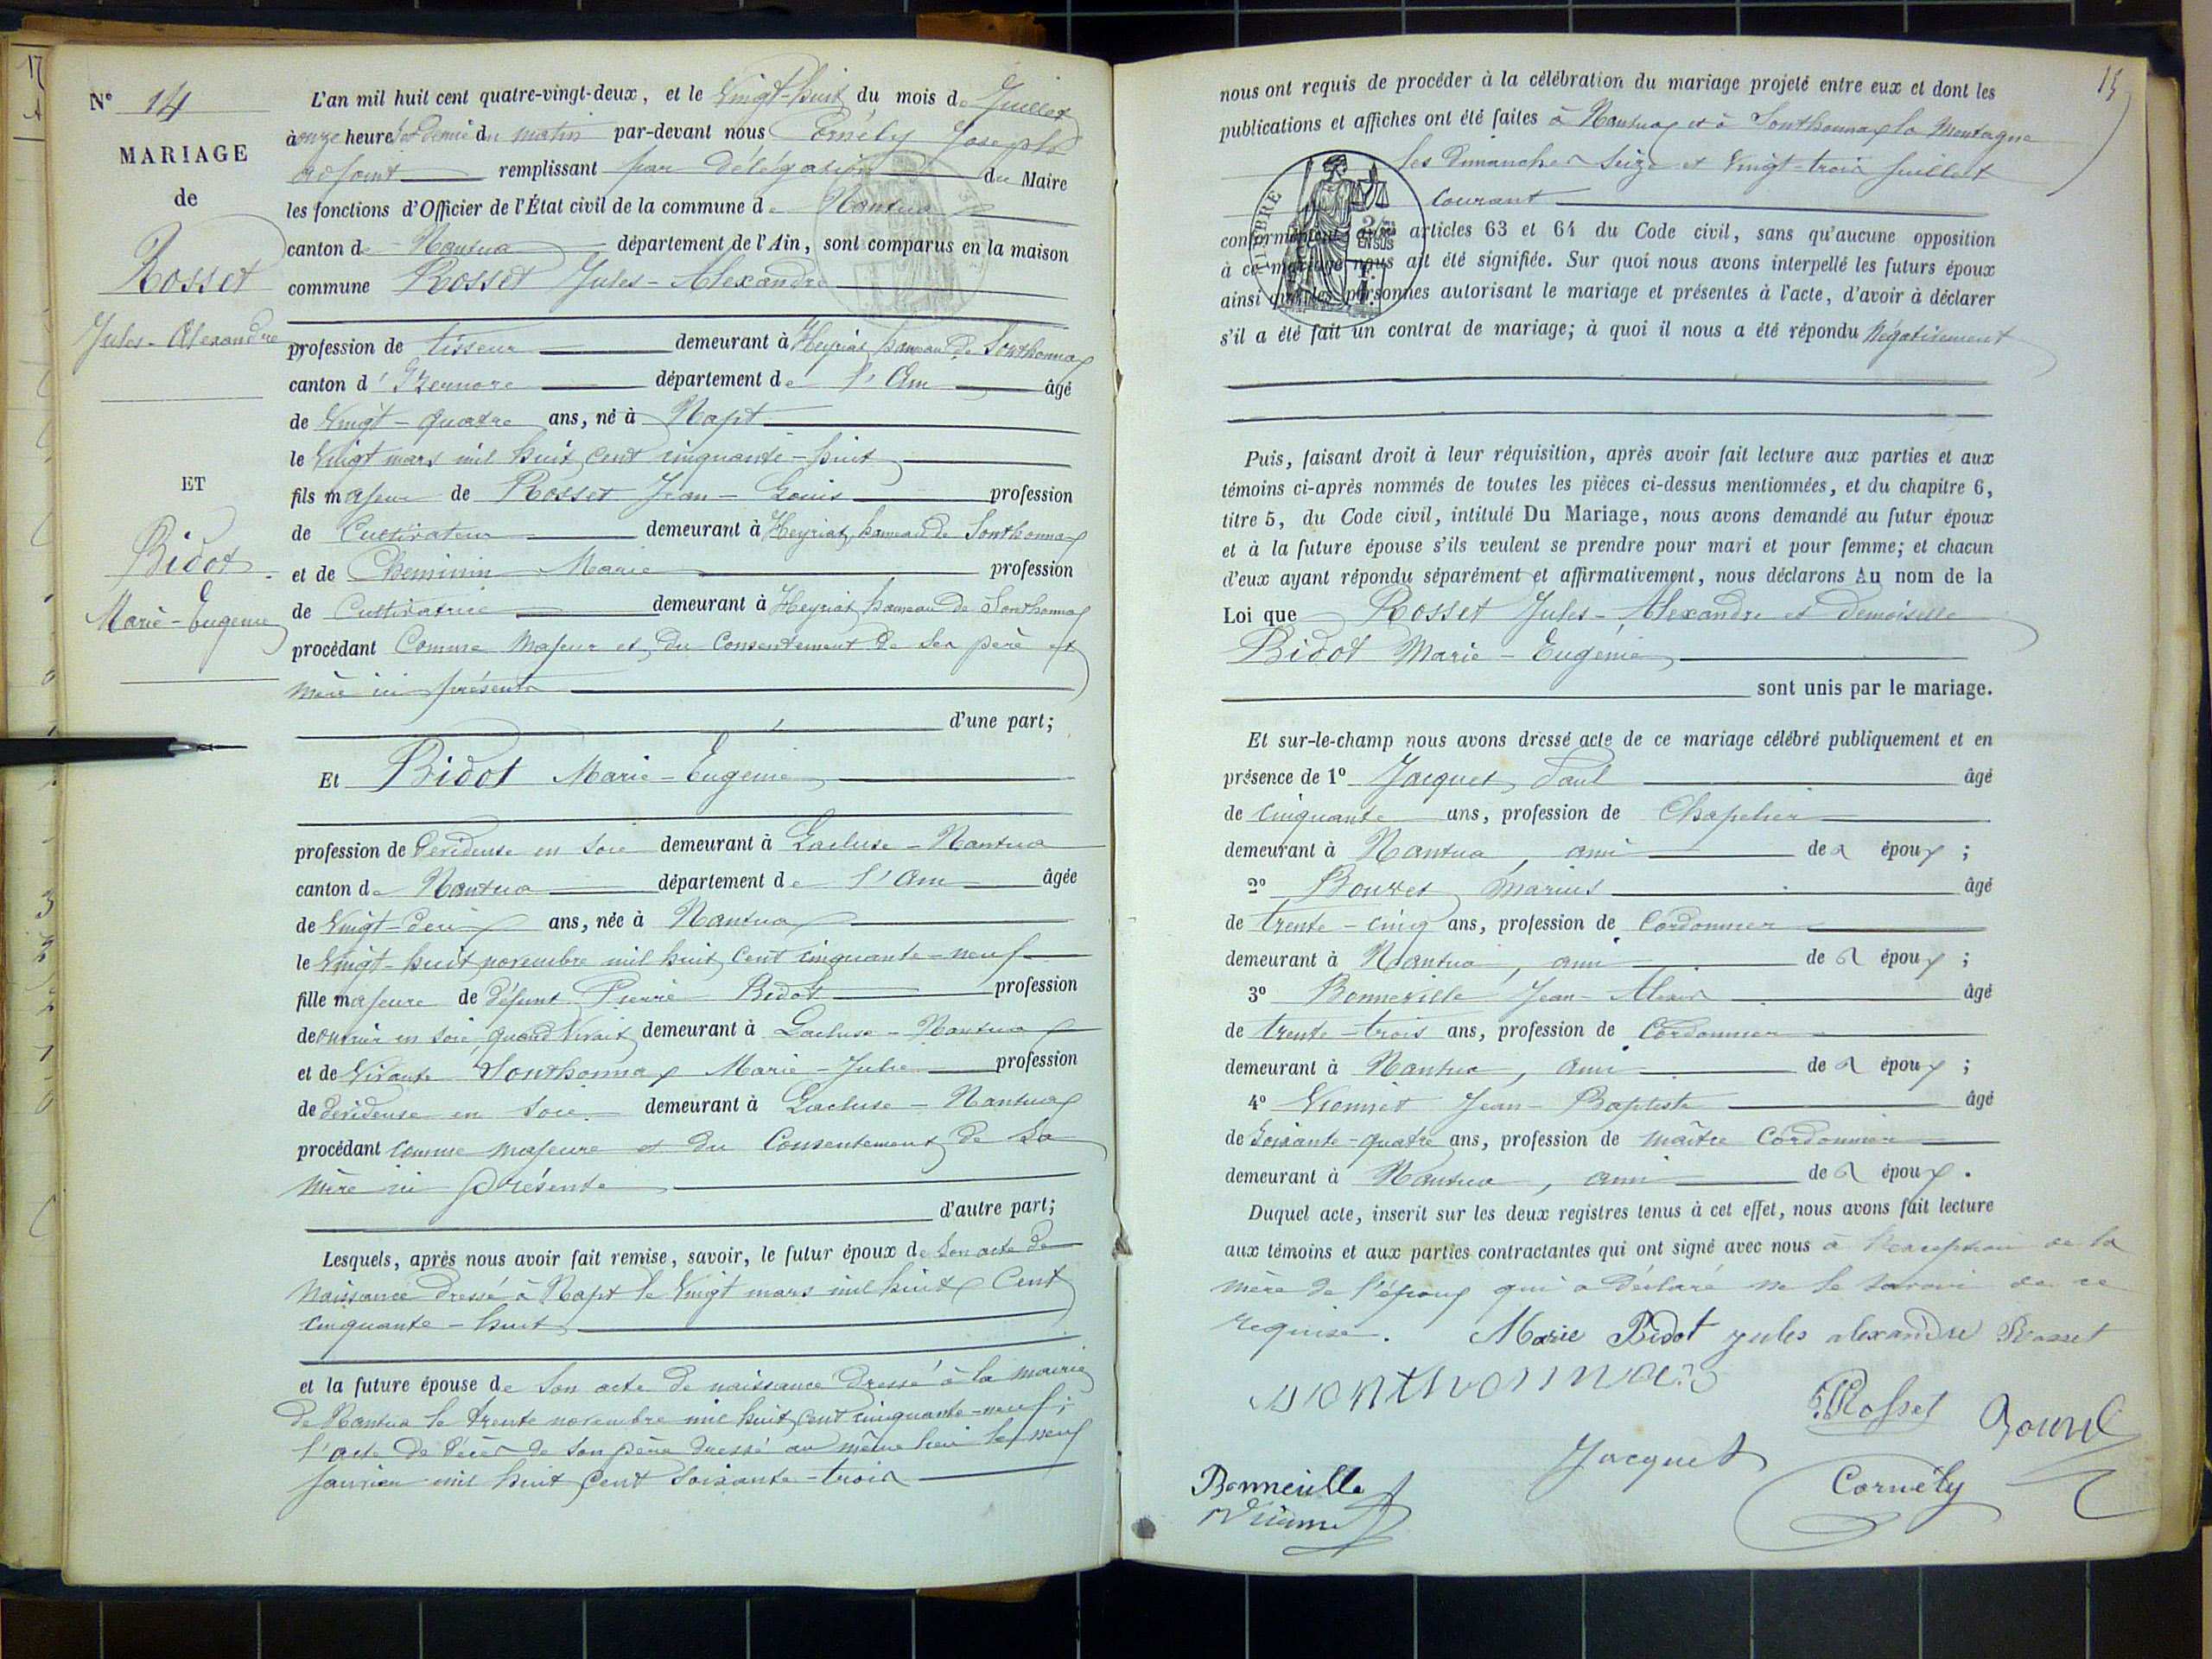 N° 14
MARIAGE
de
Rosset
Jules-Alexandre
ET
Bidot
Marie-Eugénie
L'an mil huit cent quatre-vingt-deux, et le Vingt-huit du mois de Juillet
à onze heures et demie du matin par-devant nous Cornély Joseph
adjoint remplissant par délégation du Maire
les fonctions d'Officier de l'État civil de la commune de Nantua
canton de Nantua département de l'Ain, sont comparus en la maison
commune Rosset Jules-Alexandre
profession de tisseur demeurant à Heyriat hameau de Sonthonnax
canton d'Izernore département de l'Ain âgé
de Vingt-quatre ans, né à Napt
le Vingt mars mil huit cent cinquante-huit
fils majeur de Rosset Jean-Louis profession
de Cultivateur demeurant à Heyriat, hameau de Sonthonnax
et de Cheminin Marie profession
de Cultivatrice demeurant à Heyriat hameau de Sonthonnax
procédant Comme majeur et du Consentement de ses père et
mère ici présents
d'une part;
Et Bidot Marie-Eugénie
profession de Dévideuse en soie demeurant à Lacluse-Nantua
canton de Nantua département de l'Ain âgée
de Vingt-deux ans, née à Nantua
le Vingt-huit novembre mil huit cent cinquante-neuf
fille majeure de défunt Pierre Bidot profession
de ouvrier en soie, quand vivait demeurant à Lacluse-Nantua
et de Vivante Sonthonnax Marie-Julie profession
de dévideuse en soie demeurant à Lacluse-Nantua
procédant comme majeure et du Consentement de sa
mère ici présente
d'autre part;
Lesquels, après nous avoir fait remise, savoir, le futur époux de son acte de
naissance dressé à Napt le Vingt mars mil huit Cent
cinquante-huit
et la future épouse de son acte de naissance dressé à la mairie
de Nantua le trente novembre mil huit cent cinquante-neuf;
l'acte de décès de son père dressé au même lieu le neuf
janvier mil huit cent soixante-trois
15
nous ont requis de procéder à la célébration du mariage projeté entre eux et dont les
publications et affiches ont été faites à Nantua et à Sonthonnax la Montagne
les Dimanches Seize et Vingt-trois juillet
courant
conformément aux articles 63 et 64 du Code civil, sans qu'aucune opposition
à ce mariage nous ait été signifiée. Sur quoi nous avons interpellé les futurs époux
ainsi que les personnes autorisant le mariage et présentes à l'acte, d'avoir à déclarer
s'il a été fait un contrat de mariage; à quoi il nous a été répondu Négativement
Puis, faisant droit à leur réquisition, après avoir fait lecture aux parties et aux
témoins ci-après nommés de toutes les pièces ci-dessus mentionnées, et du chapitre 6,
titre 5, du Code civil, intitulé Du Mariage, nous avons demandé au futur époux
et à la future épouse s'ils veulent se prendre pour mari et pour femme; et chacun
d'eux ayant répondu séparément et affirmativement, nous déclarons Au nom de la
Loi que Rosset Jules-Alexandre et Demoiselle
Bidot Marie-Eugénie
sont unis par le mariage.
Et sur-le-champ nous avons dressé acte de ce mariage célébré publiquement et en
présence de 1° Jacquet Paul âgé
de Cinquante ans, profession de Chapelier
demeurant à Nantua, ami des époux;
2° Bouvet Marius âgé
de trente-cinq ans, profession de Cordonnier
demeurant à Nantua, ami des époux;
3° Bonneville Jean-Alexis âgé
de trente-trois ans, profession de Cordonnier
demeurant à Nantua, ami des époux;
4° Vionnet Jean-Baptiste âgé
de Soixante-quatre ans, profession de maître Cordonnier
demeurant à Nantua, ami des époux.
Duquel acte, inscrit sur les deux registres tenus à cet effet, nous avons fait lecture
aux témoins et aux parties contractantes qui ont signé avec nous à l'exception de la
mère de l'époux qui a déclaré ne le savoir de ce
requise. Marie Bidot jules alexandre Rosset
sonthonnax
Rosset
Jacquet
Bonneville
Cornély